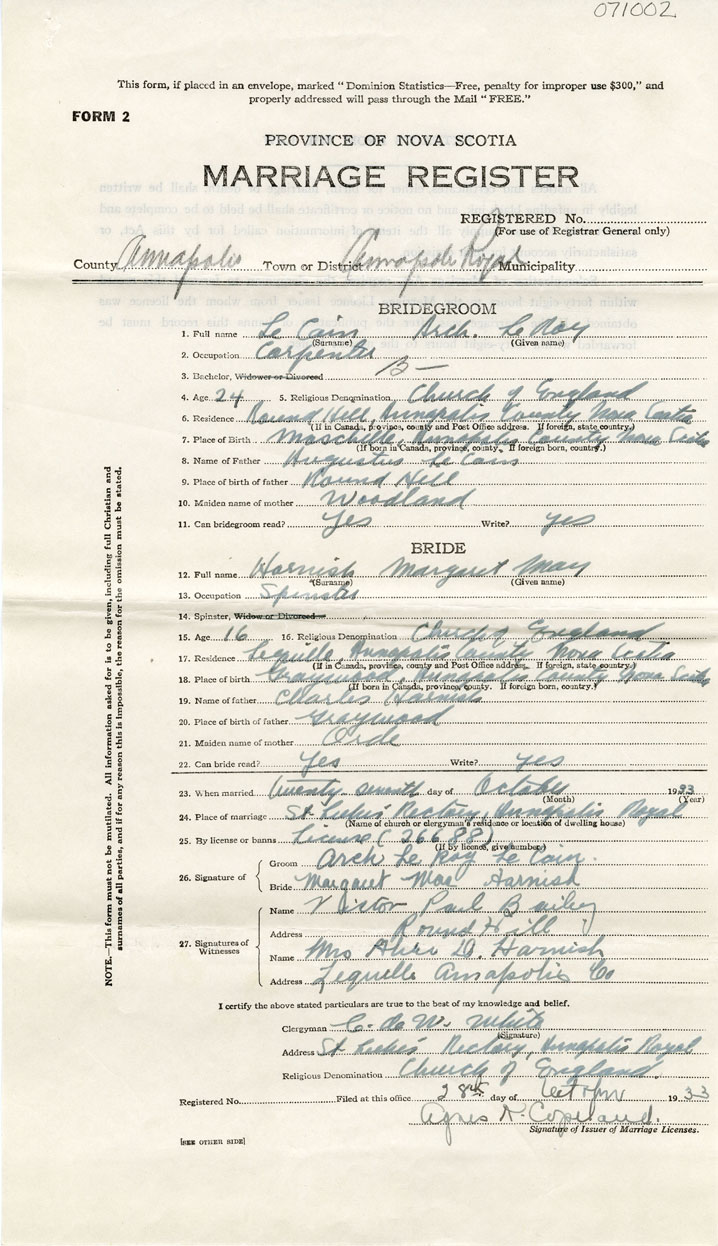 071002
This form, if placed in an envelope, marked "Dominion Statistics—Free, penalty for improper use $300," and
properly addressed will pass through the Mail "FREE."
FORM 2
PROVINCE OF NOVA SCOTIA
MARRIAGE REGISTER
REGISTERED No.
(For use of Registrar General only)
County Annapolis Town or District Annapolis Royal Municipality
BRIDEGROOM
1. Full name Le Cain Arch. Le Roy
(Surname) (Given name)
2. Occupation Carpenter
3. Bachelor, Widower or Divorced B—
4. Age 24 5. Religious Denomination Church of England
6. Residence Round Hill, Annapolis County Nova Scotia
(If in Canada, province, county and Post Office address. If foreign, state country.)
7. Place of Birth Moschelle, Annapolis County Nova Scotia
(If born in Canada, province, county. If foreign born, country.)
8. Name of Father Augustus Le Cain
9. Place of birth of father Round Hill
10. Maiden name of mother Woodland
11. Can bridegroom read? Yes Write? yes
BRIDE
12. Full name Harnish Margaret May
(Surname) (Given name)
13. Occupation Spinster
14. Spinster, Widow or Divorced
15. Age 16 16. Religious Denomination Church of England
17. Residence Lequille, Annapolis County Nova Scotia
(If in Canada, province, county and Post Office address. If foreign, state country.)
18. Place of birth Graywood, Annapolis County Nova Scotia
(If born in Canada, province, county. If foreign born, country.)
19. Name of father Charles Harnish
20. Place of birth of father Graywood
21. Maiden name of mother Orde
22. Can bride read? Yes Write? yes
23. When married twenty seventh day of October 1933
(Month) (Year)
24. Place of marriage St. Luke's Rectory, Annapolis Royal
(Name of church or clergyman's residence or location of dwelling house)
25. By license or banns License (26688)
(If by licence, give number)
26. Signature of
Groom Arch Le Roy Le Cain.
Bride Margaret Mae Harnish
27. Signatures of Witnesses
Name Victor Paul Bailey
Address Round Hill
Name Mrs Alice D. Harnish
Address Lequille Annapolis Co
I certify the above stated particulars are true to the best of my knowledge and belief.
Clergyman C. de W. White
(Signature)
Address St Luke's Rectory, Annapolis Royal
Religious Denomination Church of England.
Registered No. Filed at this office 28th day of October 1933
Agnes R. Copeland.
Signature of Issuer of Marriage Licenses.
[SEE OTHER SIDE]
NOTE.—This form must not be mutilated. All information asked for is to be given, including full Christian and
surnames of all parties, and if for any reason this is impossible, the reason for the omission must be stated.